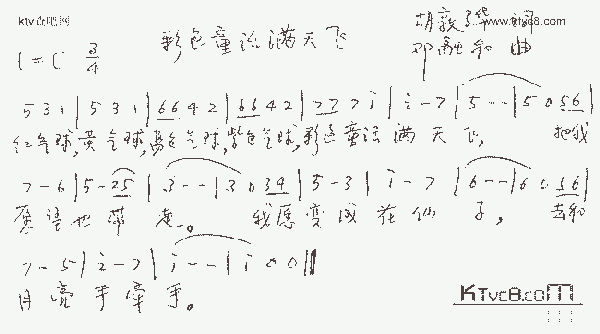 ktv点歌网
www.ktvc8.com
彩色童话满天飞
胡敦骅 词
1=C 3/4
邓融和 曲
5 3 1 | 5 3 1 | 6 6 4 2 | 6 6 4 2 | 7 7 7 i | i - 7 | i - - | 5 0 5 6 |
红气球,黄气球,蓝色气球,紫色气球,彩色童话满天飞, 把我
7 - 6 | 5 - 2 5 | 3 - - | 3 0 3 4 | 5 - 3 | i - 7 | 6 - - | 6 0 5 6 |
愿望也带走。 我愿变成花仙子, 去和
7 - 5 | 2 - 7 | i - - | i 0 0 ||
月亮手牵手。
KTvc8.com